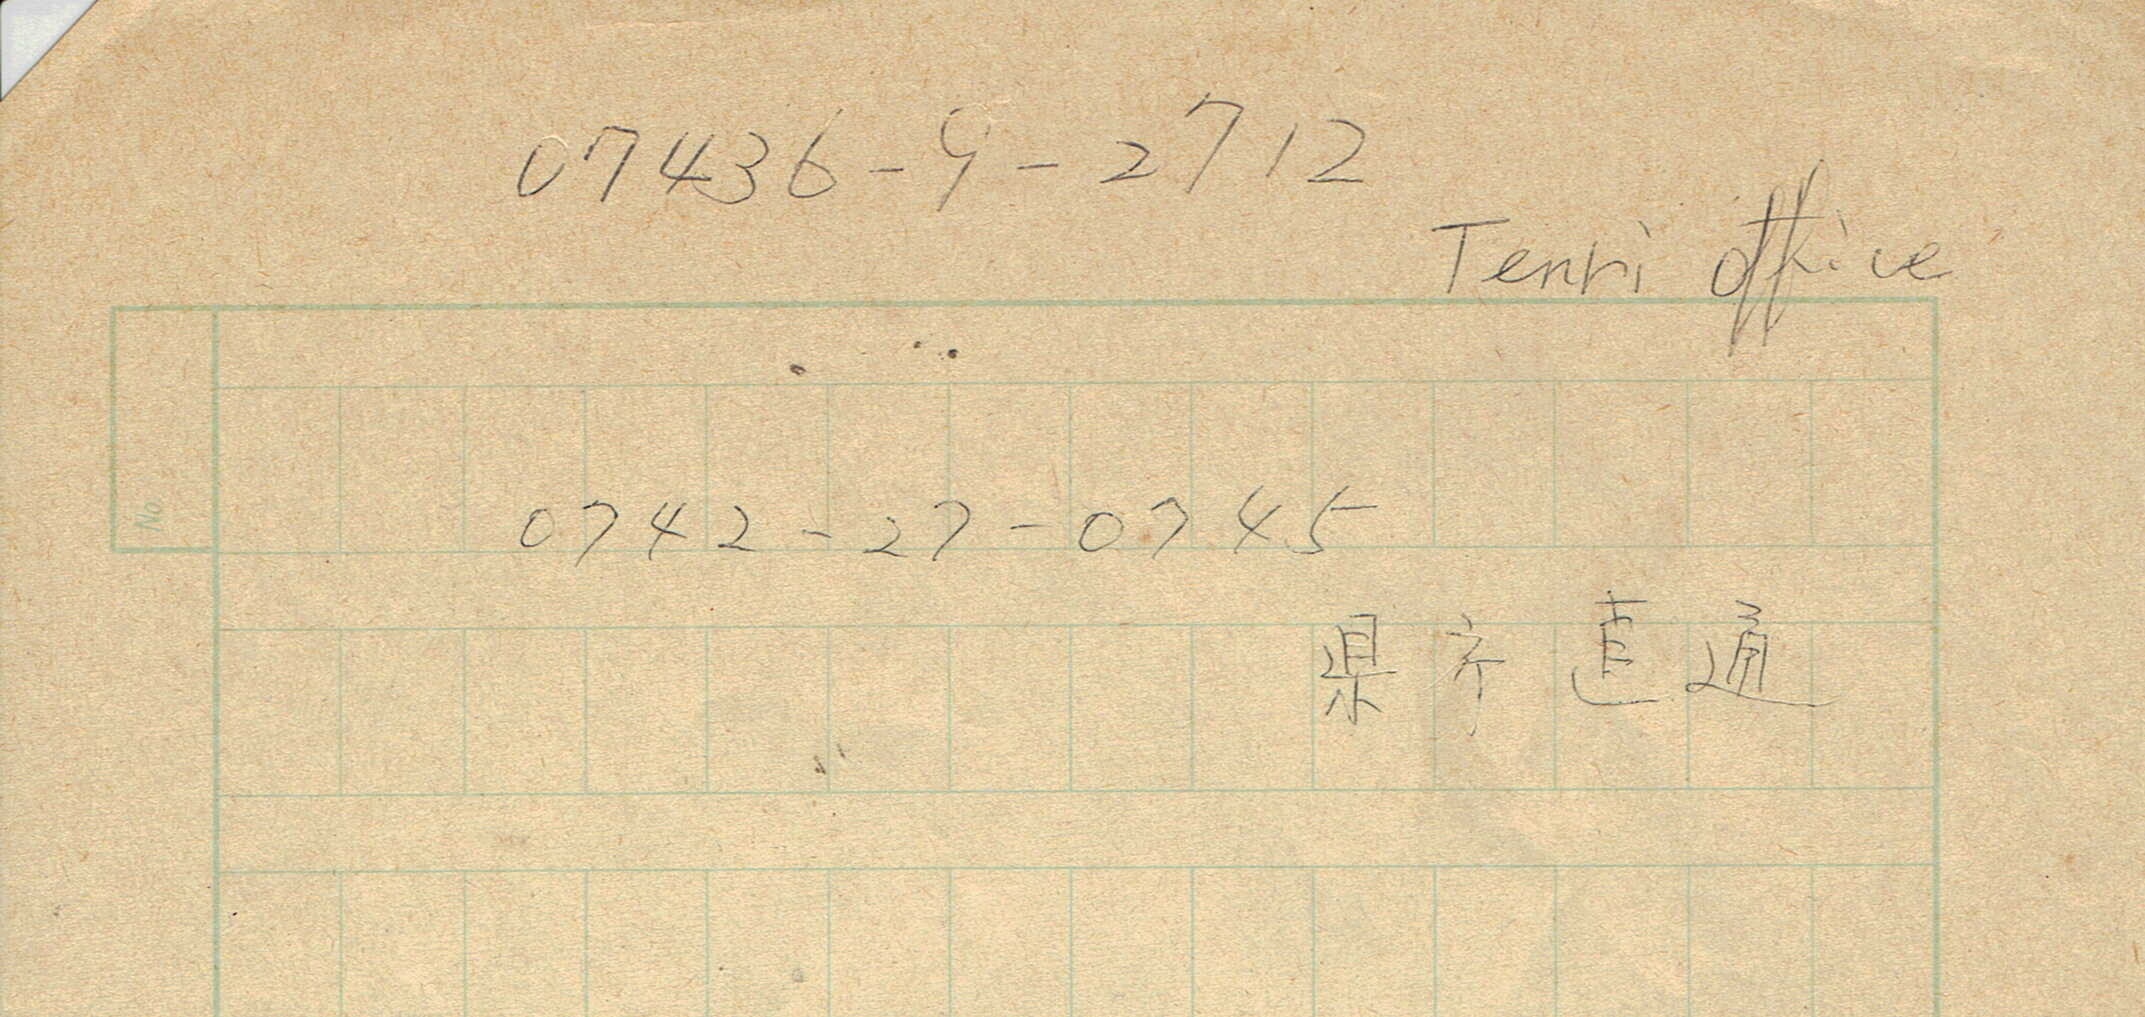 07436-9-2712
Tenri office
No.
0742-27-0745
県庁直通